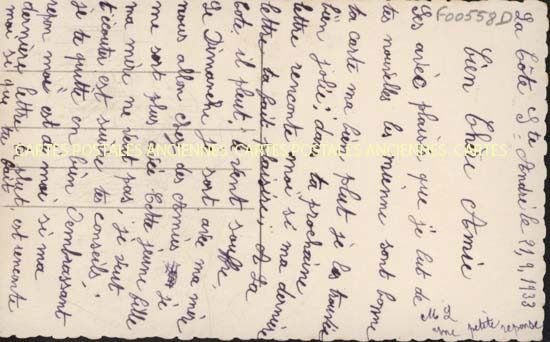 F00558D
La Côte St André le 21.9.1933
bien Chère Amie
C'est avec plaisir que je lut de
tes nouvelles les mienne sont bonne
ta carte ma bien plut je la trouvée
bien jolie, dans ta prochaine
lettre rencontre moi si ma dernière
lettre ta fait plaisir. A La
Côte il plut, le vent souffle,
Le Dimanche je sort avec ma mère
nous allon chez des Amies je
ne sort plus avec Cette jeune fille
ma mère ne veut pas, je veut
t'écouter est suivre tes conseils,
je te quitte en bien t'embrassant
repon moi est moi si ma
dernière lettre plut est revente
moi si que tu fait
M L
une petite reponse
CARTES POSTALES ANCIENNES CARTES POSTALES ANCIENNES CARTES